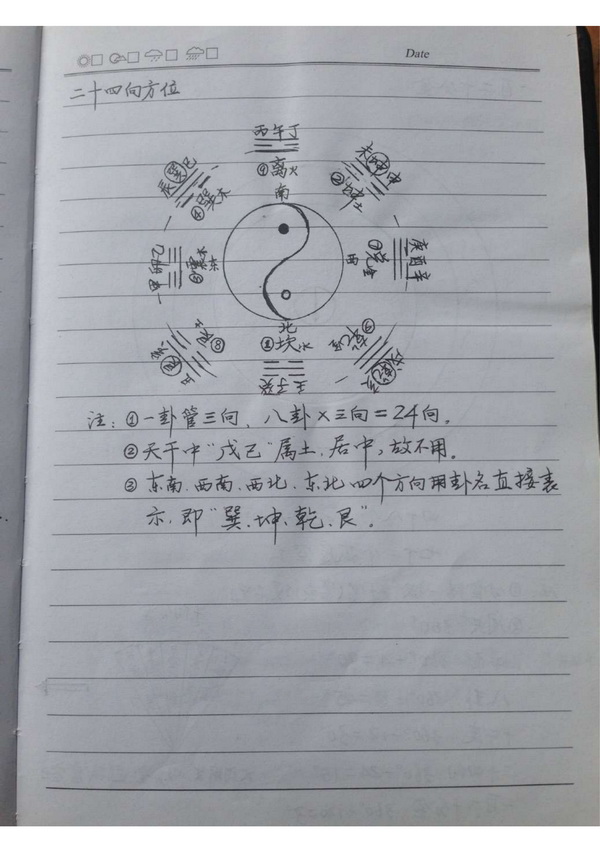 Date
二十四向方位
丙午丁
⑨离火
南
未坤申
②坤土
辰巽巳
④巽木
甲卯乙
③震木
东
西
⑦兑金
庚酉辛
⑧艮土
丑艮寅
北
①坎水
壬子癸
⑥乾金
戌乾亥
注：①一卦管三向，八卦×三向=24向。
②天干中"戊己"属土、居中，故不用。
③东南、西南、西北、东北四个方向用卦名直接表
示，即"巽、坤、乾、艮"。